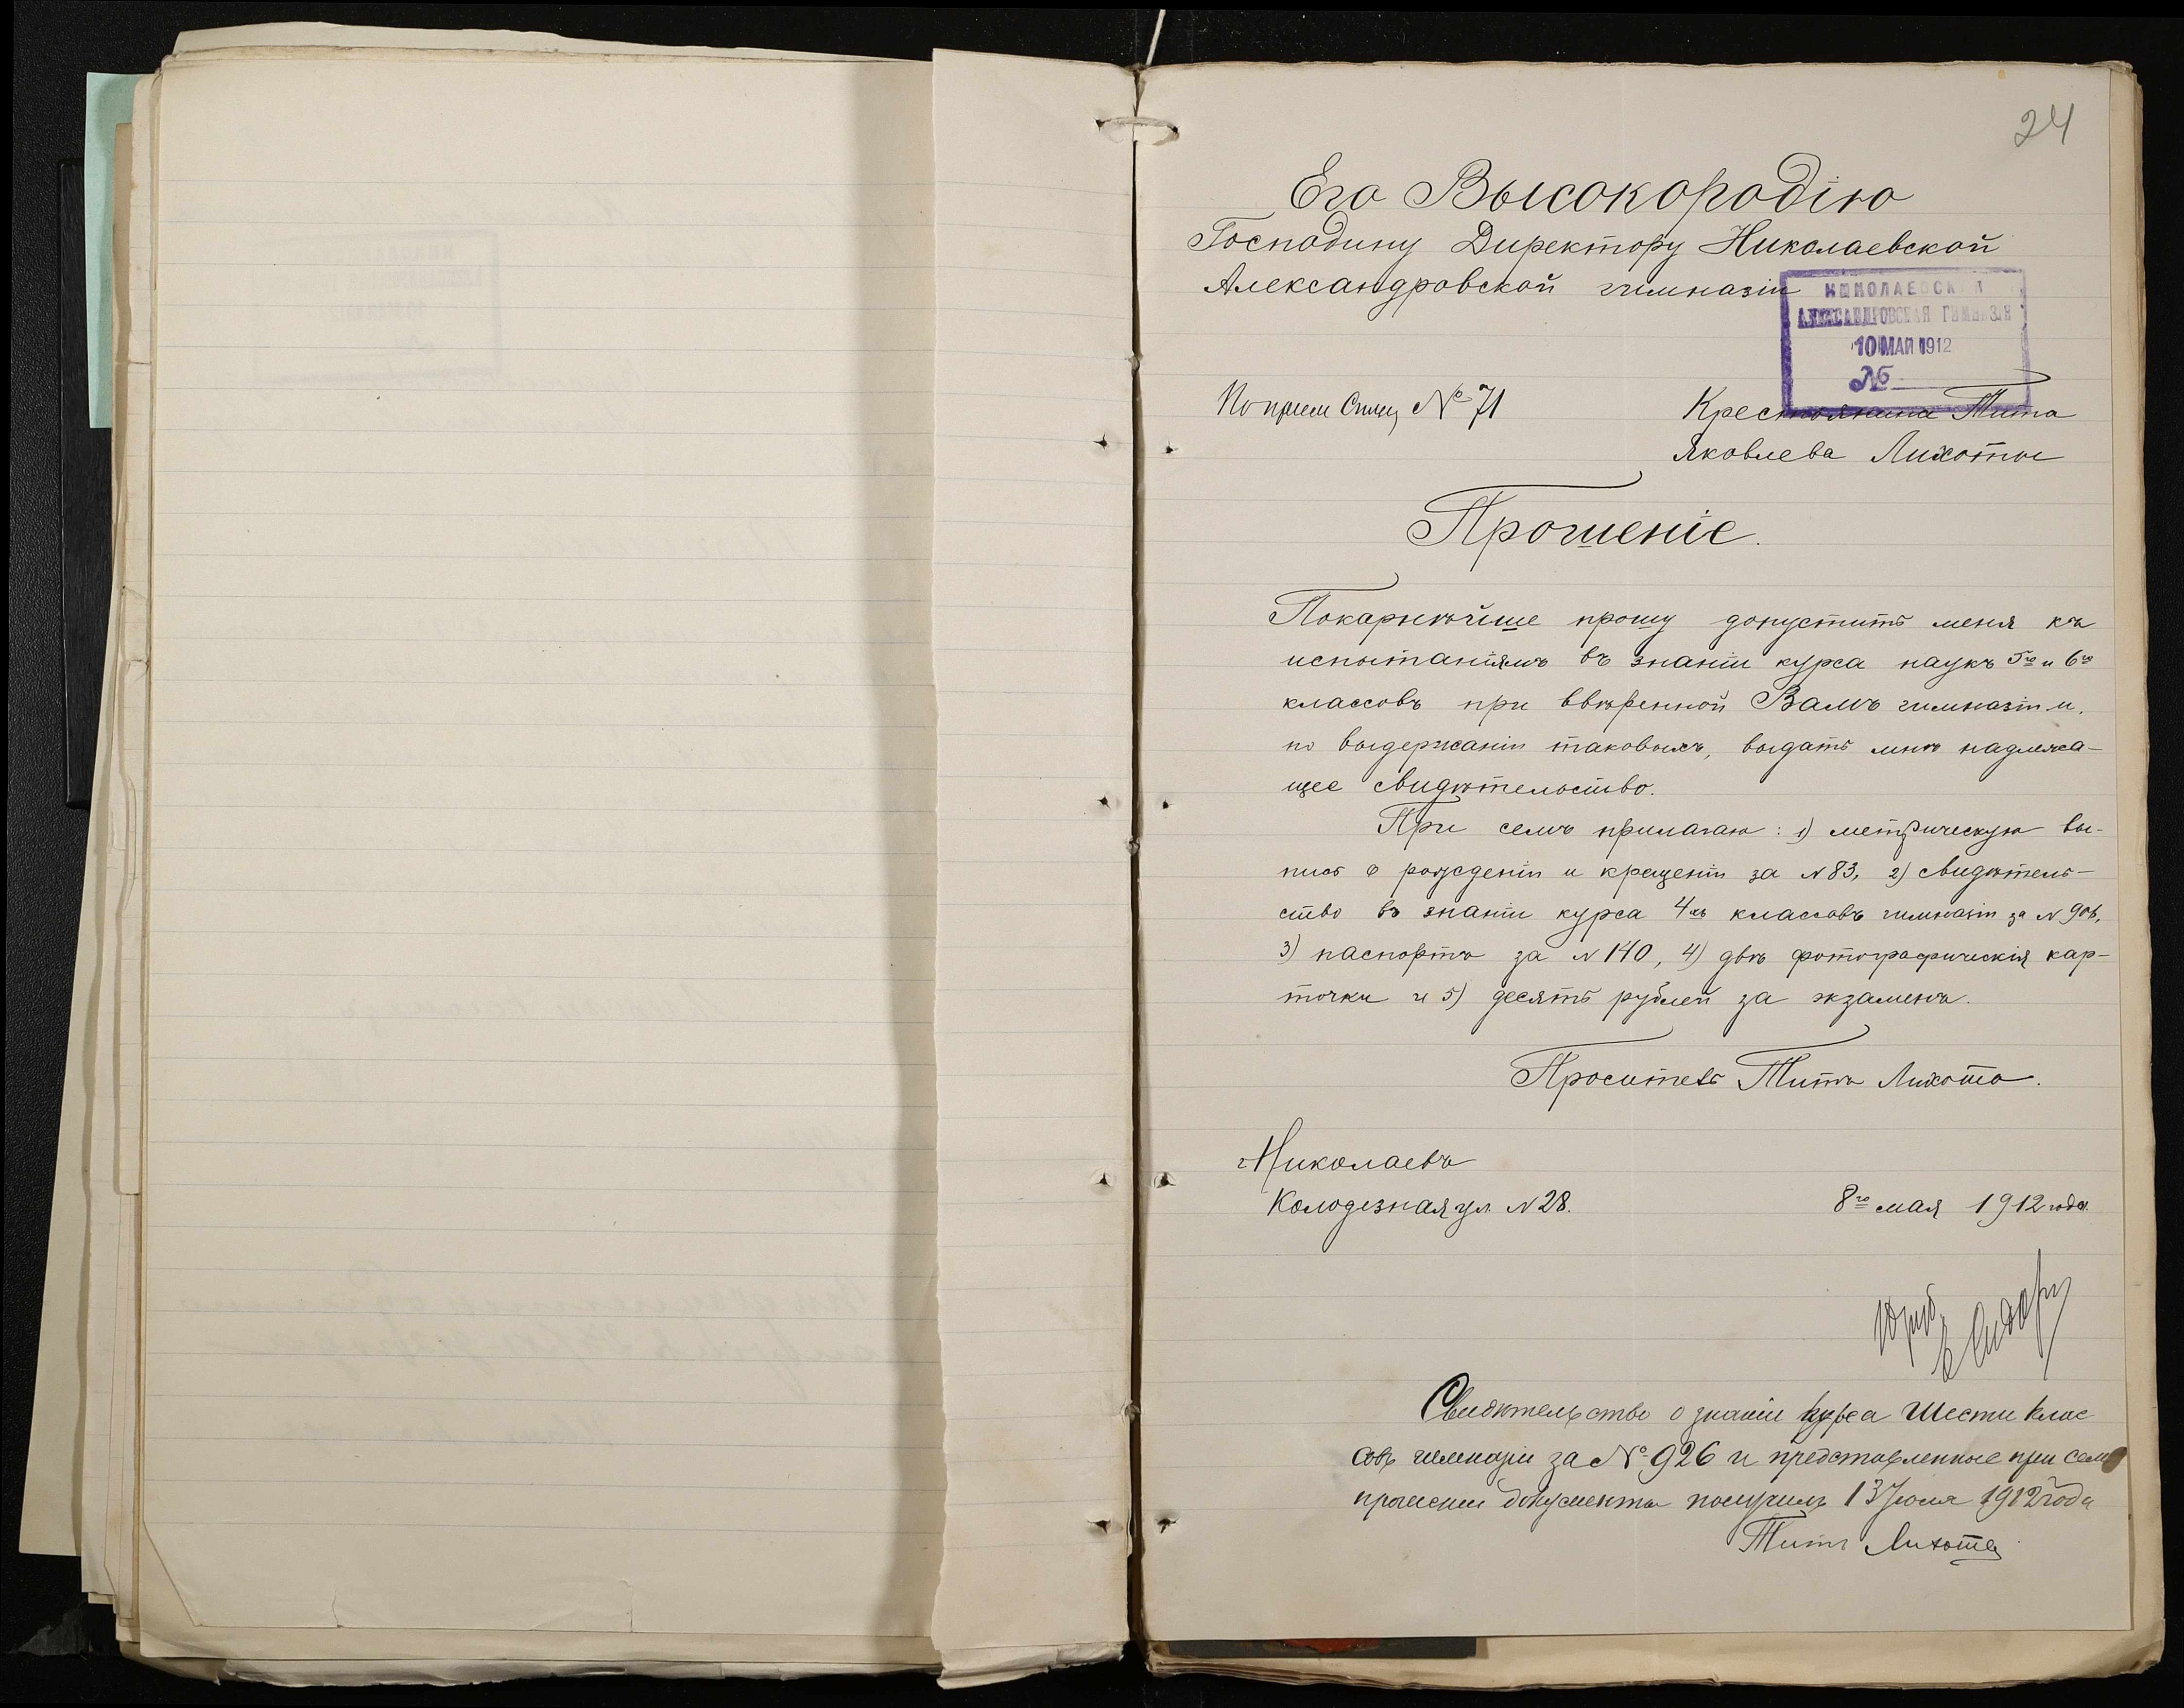 24
Его Высокородію
Господину Директору Николаевской
Александровской гимназіи
НИКОЛАЕВСКАЯ
АЛЕКСАНДРОВСКАЯ ГИМНАЗІЯ
10 МАЯ 1912
№
По № 71
Крестьянина Тита
Яковлева Лихоты
Прошеніе.
Покорнѣйше прошу допустить меня къ
испытаніямъ въ знаніи курса наукъ 5го и 6го
классовъ при ввѣренной Вамъ гимназіи и,
по выдержаніи таковыхъ, выдать мнѣ надлежа-
щее свидѣтельство.
При семъ прилагаю: 1) метрическую вы-
пись о рожденіи и крещеніи за N 83, 2) свидѣтель-
ство въ знаніи курса 4хъ классовъ гимназіи за N
3) паспортъ за N 140, 4) двѣ фотографическія кар-
точки и 5) десять рублей за экзаменъ.
Проситель Титъ Лихота.
г. Николаевъ
Колодезная ул. N 28.
8го мая 1912 года.
Свидѣтельство о знаніи курса шести клас
совъ гимназіи за № 926 и представленные при семъ
прошеніи документы получилъ 13 Іюля 1912 года
Титъ Лихота